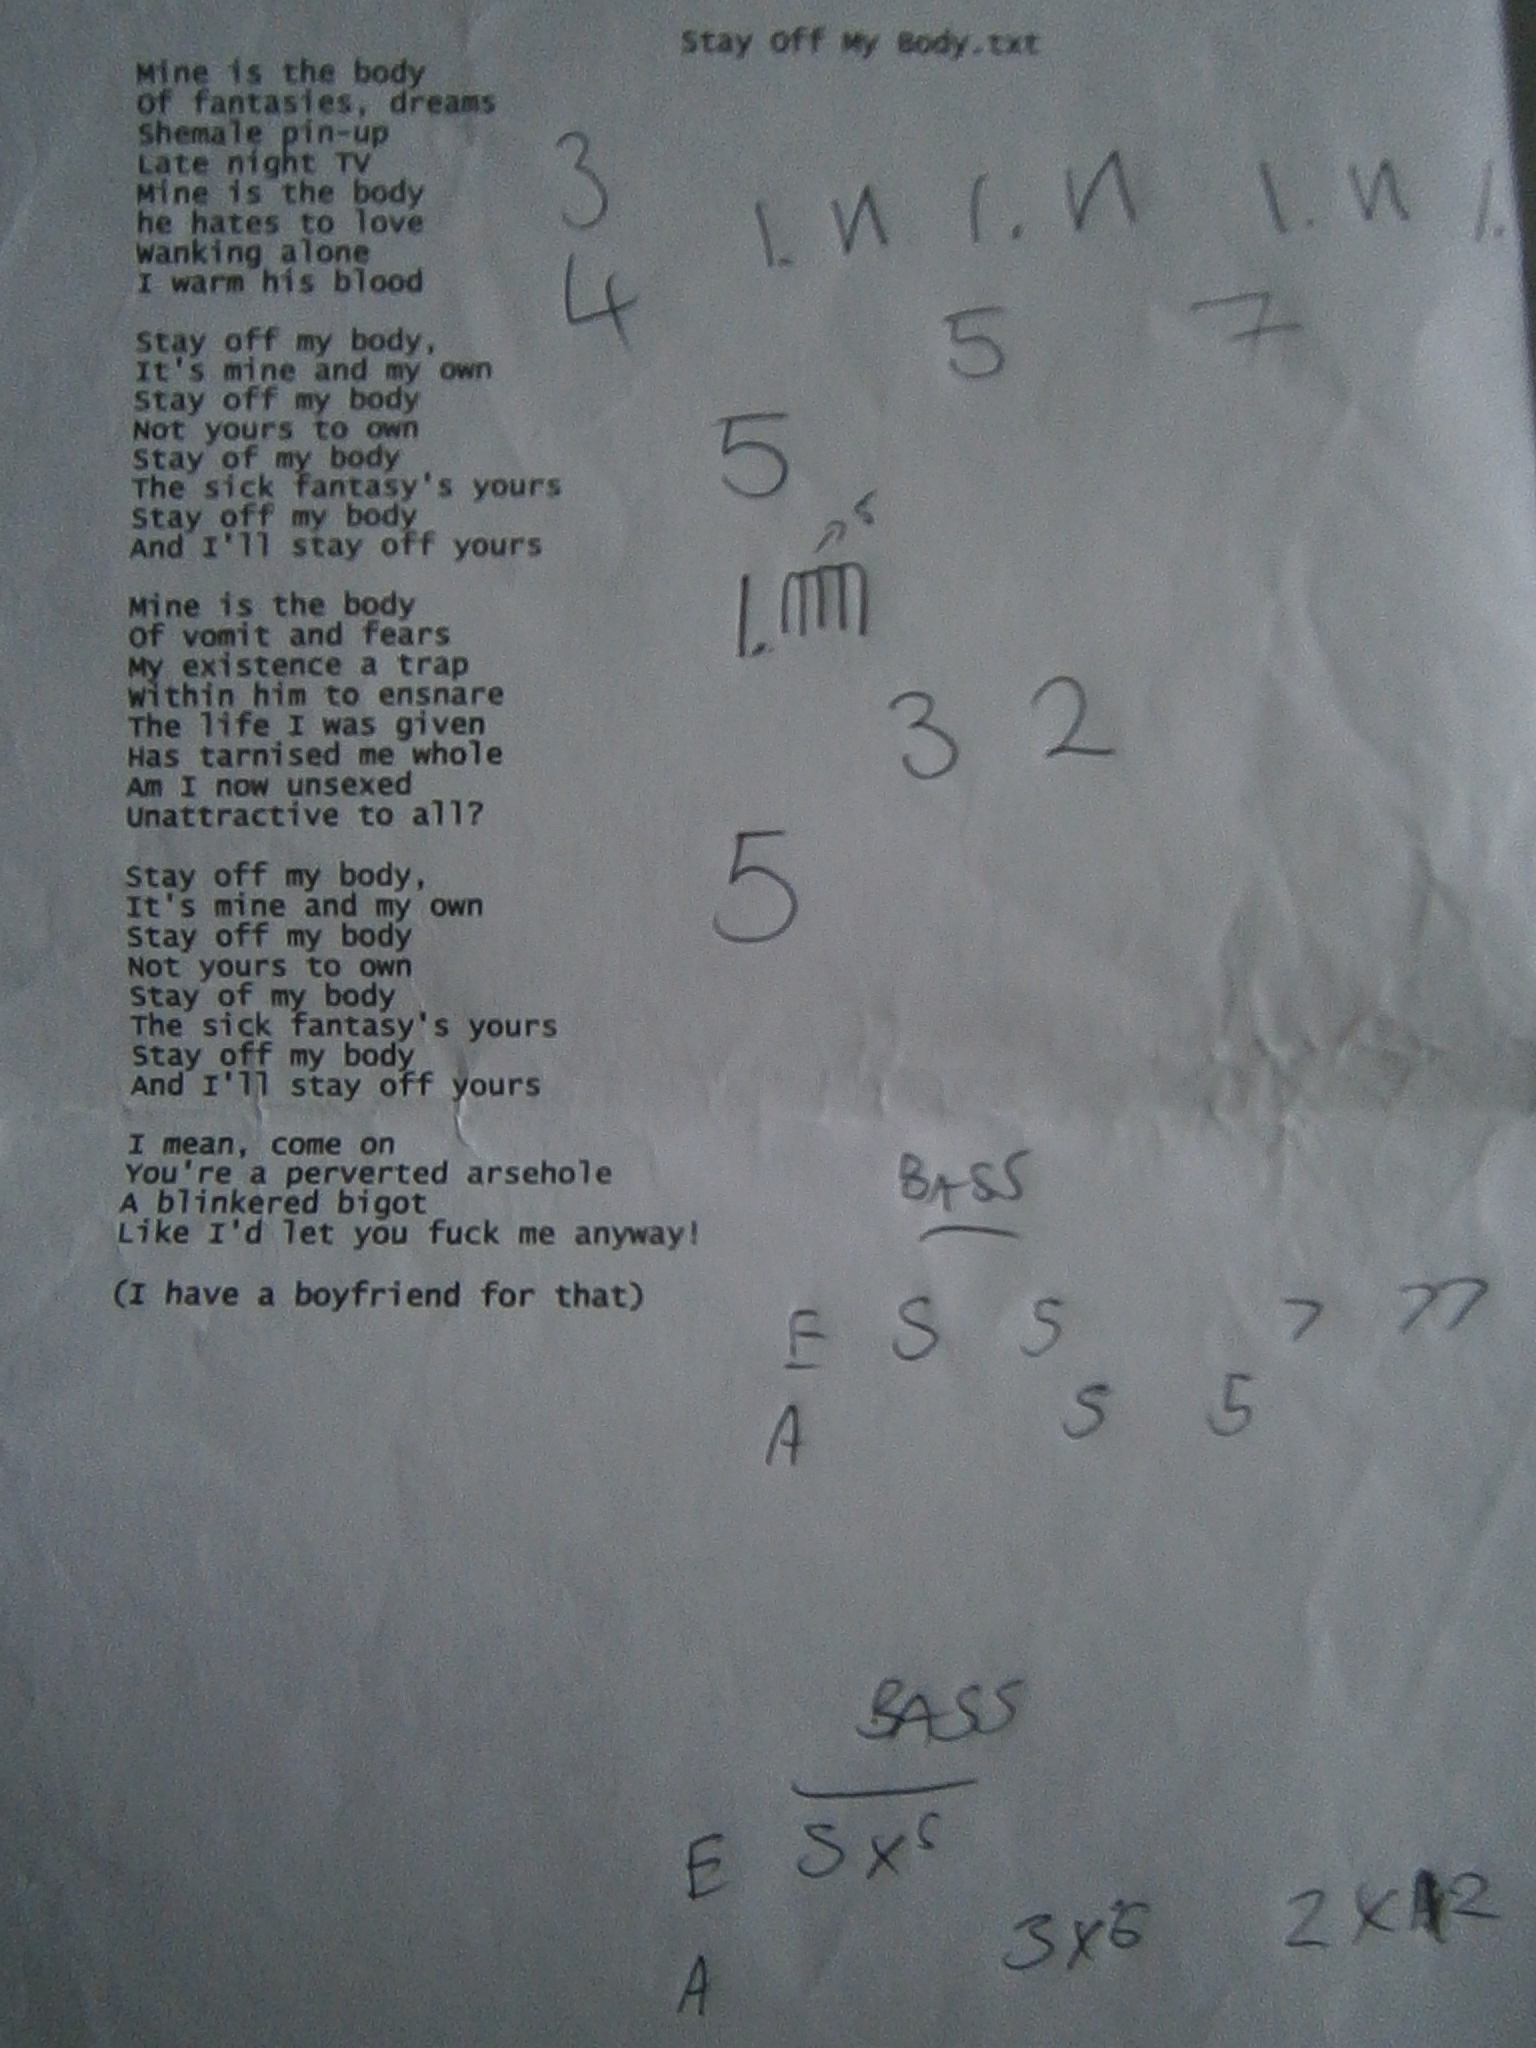 Stay Off My Body.txt
Mine is the body
Of fantasies, dreams
Shemale pin-up
Late night TV
Mine is the body
he hates to love
Wanking alone
I warm his blood
3
4
5 7
Stay off my body,
It's mine and my own
Stay off my body
Not yours to own
Stay of my body
The sick fantasy's yours
Stay off my body
And I'll stay off yours
5
Mine is the body
Of vomit and fears
My existence a trap
Within him to ensnare
The life I was given
Has tarnised me whole
Am I now unsexed
Unattractive to all?
3 2
Stay off my body,
It's mine and my own
Stay off my body
Not yours to own
Stay of my body
The sick fantasy's yours
Stay off my body
And I'll stay off yours
5
I mean, come on
You're a perverted arsehole
A blinkered bigot
Like I'd let you fuck me anyway!
(I have a boyfriend for that)
BASS
E 5 5 7 77
A 5 5
BASS
E 5x5
A 3x5 2x12